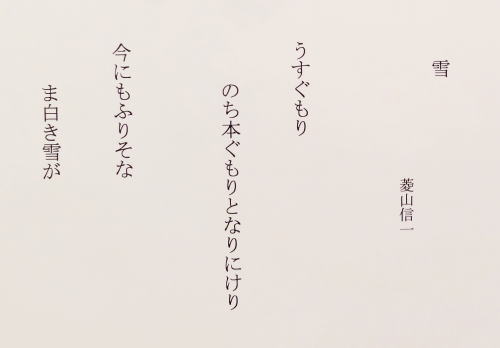 雪
菱山信一
うすぐもり
のち本ぐもりとなりにけり
今にもふりそな
ま白き雪が